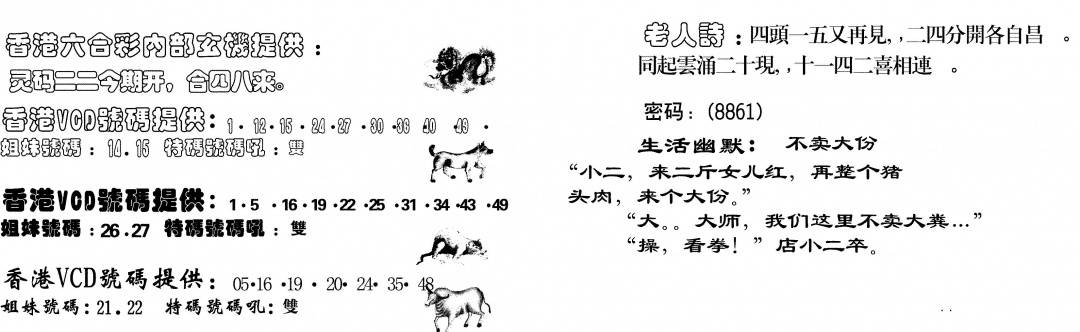 香港六合彩内部玄機提供：
灵码二二今期开，合四八来。
香港VCD號碼提供：1·12·15·24·27·30·38 40 49·
姐妹號碼：14.15 特碼號碼吼：雙
香港VCD號碼提供：1·5·16·19·22·25·31·34·43·49
姐妹號碼：26.27 特碼號碼吼：雙
香港VCD號碼提供：05·16·19·20·24·35·48
姐妹號碼：21.22 特碼號碼吼：雙
老人詩：四頭一五又再見，，二四分開各自昌。
同起雲涌二十現，，十一四二喜相連。
密码：(8861)
生活幽默： 不卖大份
“小二，来二斤女儿红，再整个猪
头肉，来个大份。”
“大。。大师，我们这里不卖大粪…”
“操，看拳！”店小二卒。